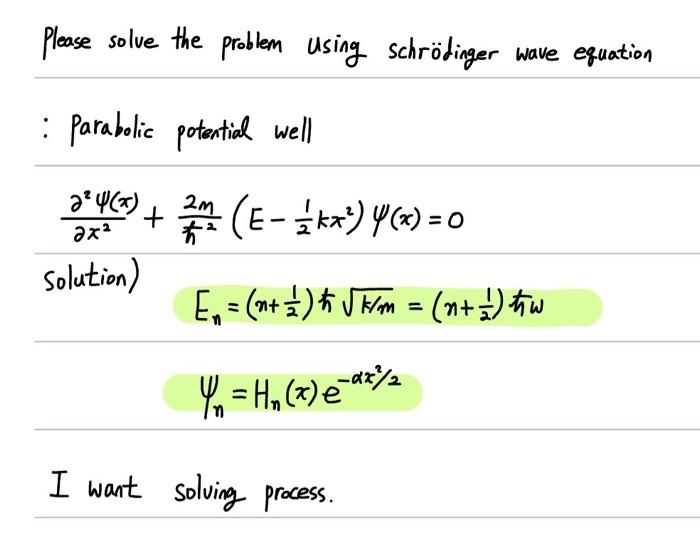 Please solve the problem using schrödinger wave equation
: Parabolic potential well
∂²Ψ(x)/∂x² + 2m/ħ² (E - 1/2 kx²) Ψ(x) = 0
Solution)
Eₙ = (n + 1/2) ħ √k/m = (n + 1/2) ħw
Ψₙ = Hₙ(x) e^(-αx²/2)
I want solving process.